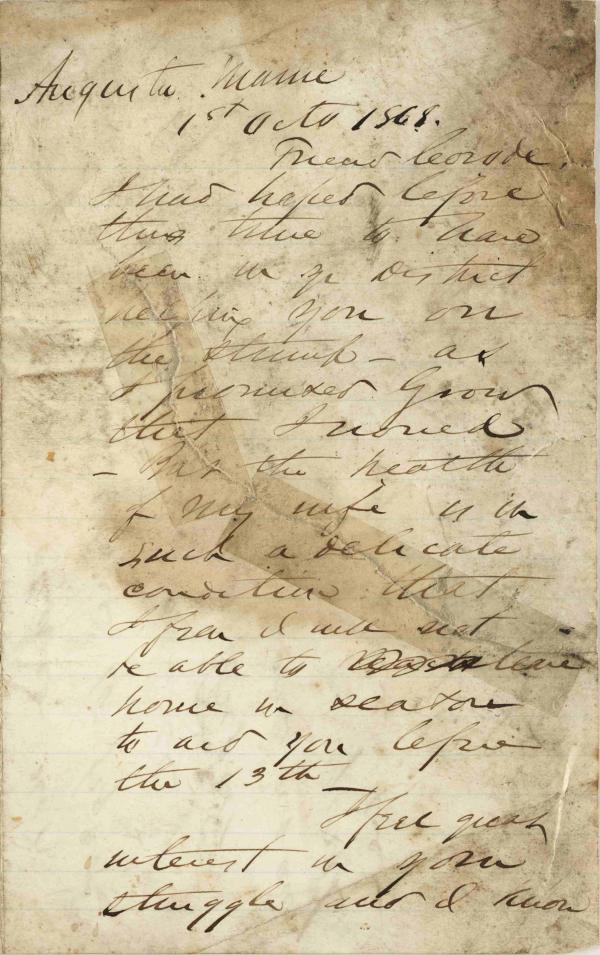 Augusta Maine
1st Octo 1868.
Friend Covode,
I had hoped before
this time to have
been in yr District
helping you on
the stump - as
I promised Grow
that I would
- But the health
of my wife is in
such a delicate
condition that
I fear I will not
be able to leave
home in season
to aid you before
the 13th
I feel great
interest in your
struggle and I know